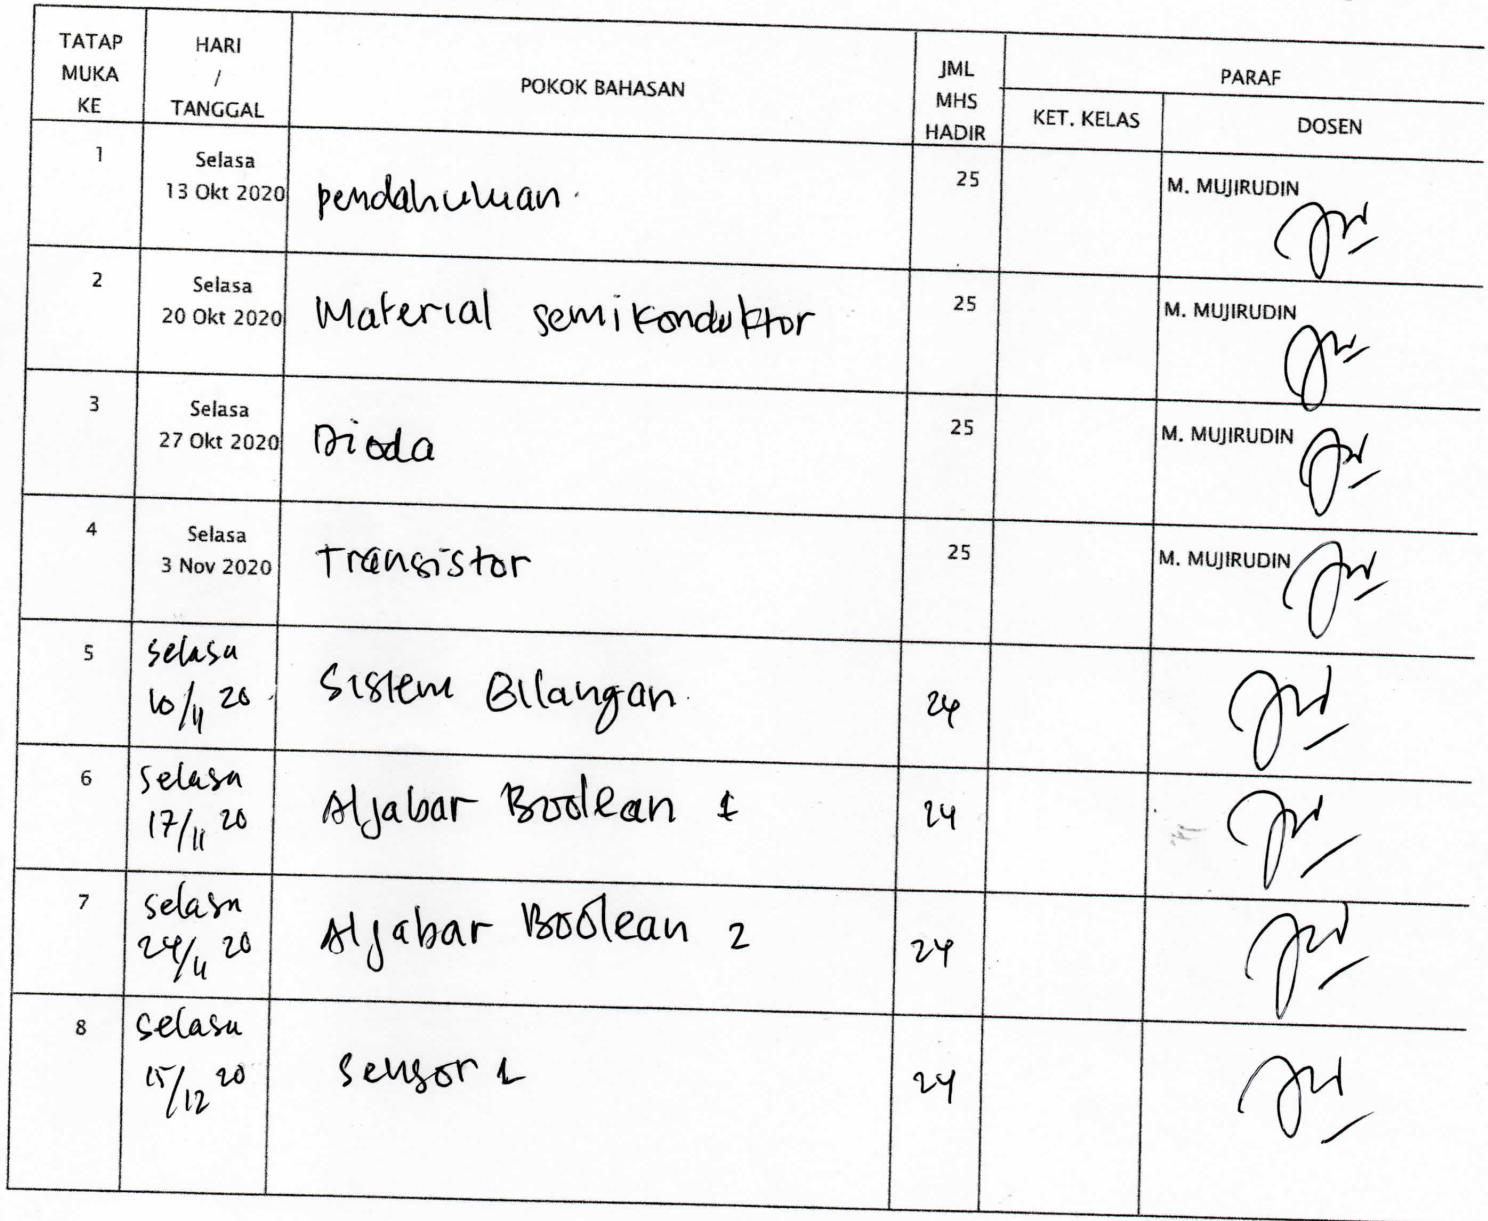 TATAP MUKA KE
HARI / TANGGAL
POKOK BAHASAN
JML MHS HADIR
PARAF
KET. KELAS
DOSEN
1
Selasa
13 Okt 2020
pendahuluan.
25
M. MUJIRUDIN
2
Selasa
20 Okt 2020
Material semikonduktor
25
M. MUJIRUDIN
3
Selasa
27 Okt 2020
Dioda
25
M. MUJIRUDIN
4
Selasa
3 Nov 2020
Transistor
25
M. MUJIRUDIN
5
Selasa
10/11 20
Sistem Bilangan.
24
6
Selasa
17/11 20
Aljabar Boolean 1
24
7
Selasa
24/11 20
Aljabar Boolean 2
24
8
Selasa
15/12 20
Sensor 1
24